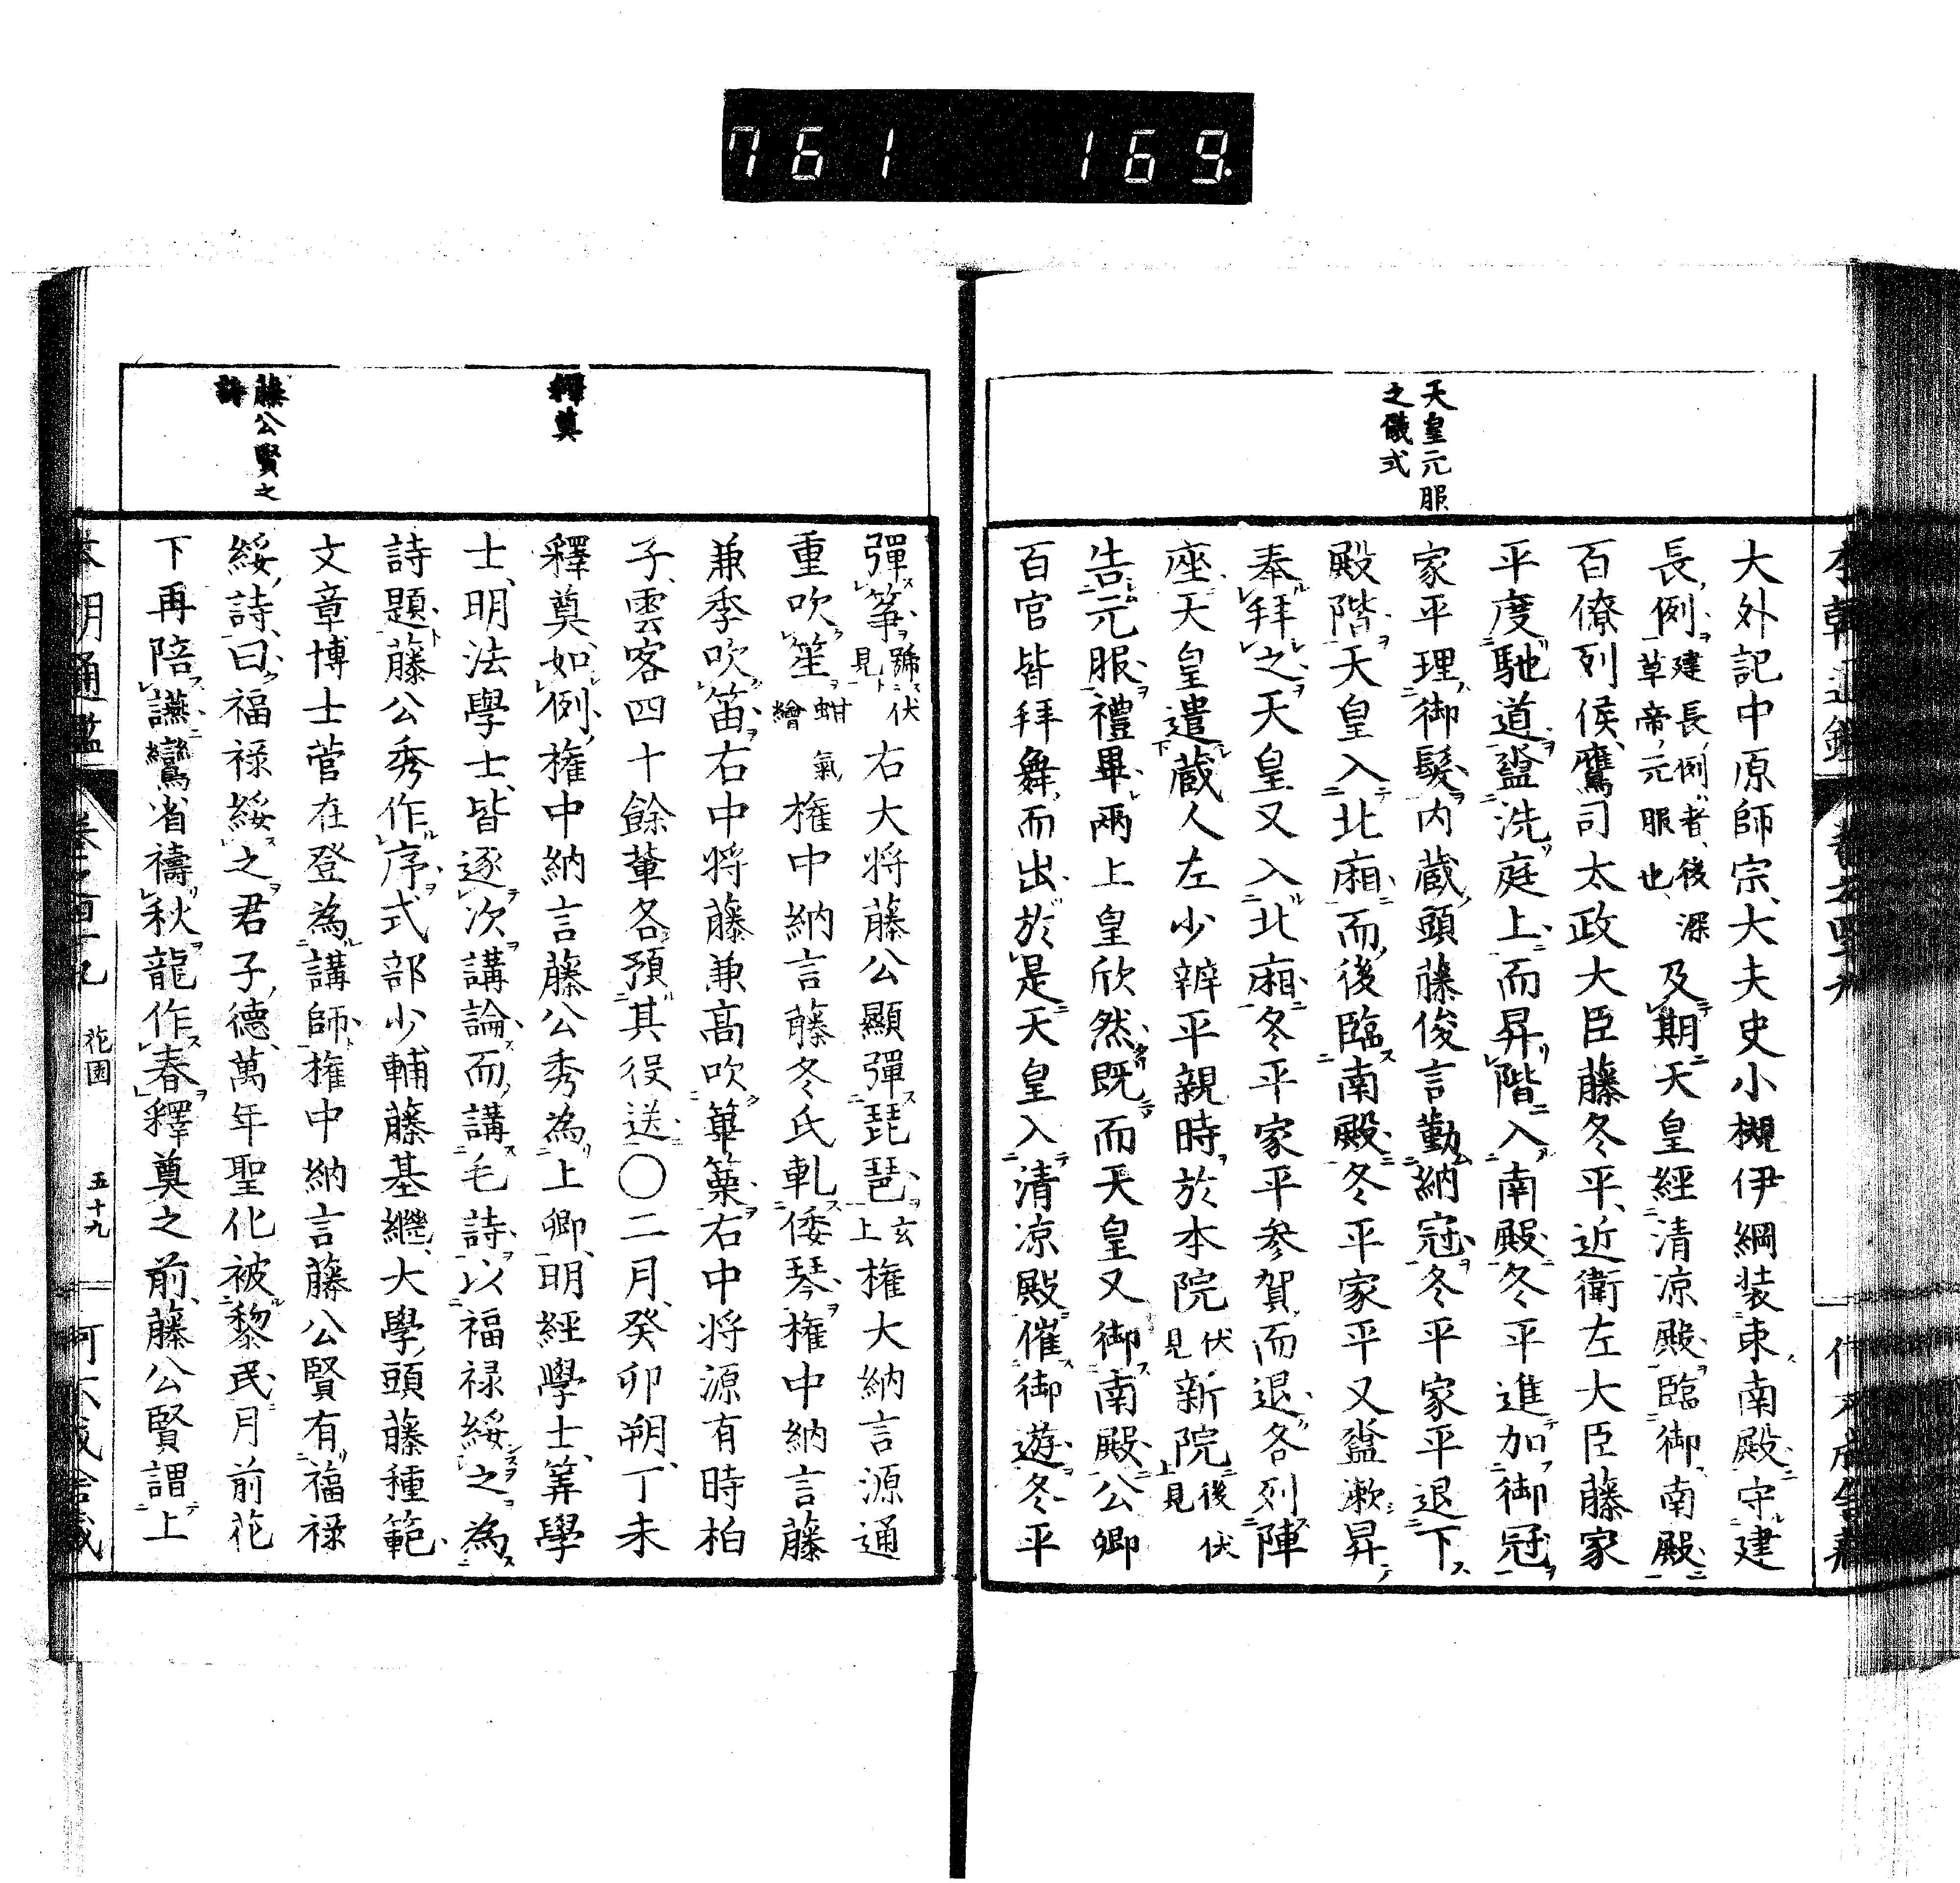 761 169.
天皇元服
之儀式
大外記中原師宗、大夫史小槻伊綱装束南殿守建
長例建長例者、後深草帝元服也、及期天皇經清凉殿臨御南殿
百僚列候、鷹司太政大臣藤冬平、近衛左大臣藤家
平度馳道盥洗庭上而昇階入南殿冬平進加御冠
家平理御髮内蔵頭藤俊言勤納冠冬平家平退下
殿階天皇入北廂而後臨南殿冬平家平又盥漱昇
奉拜之天皇又入北廂冬平家平参賀而退各列陣
座天皇遣蔵人左少辨平親時於本院伏見新院後伏見上
告元服禮畢兩上皇欣然既而天皇又御南殿公卿
百官皆拜舞而出於是天皇入清凉殿催御遊冬平
釋奠
藤公賢之
詩
彈箏號伏見右大将藤公顯彈琵琶玄上權大納言源通
重吹笙蚶氣繪權中納言藤冬氏軋倭琴權中納言藤
兼季吹笛右中将藤兼高吹篳篥右中将源有時柏
子、雲客四十餘輩各預其役送〇二月、癸卯朔、丁未
釋奠如例、權中納言藤公秀為上卿、明經學士、筭學
士、明法學士、皆逐次講論而講毛詩以福禄綏之為
詩題藤公秀作序式部少輔藤基繼、大學頭藤種範、
文章博士菅在登為講師權中納言藤公賢有福禄
綏詩曰福禄綏之君子德、萬年聖化被黎民月前花
下再陪讌鸞省禱秋龍作春釋奠之前、藤公賢謂上
本朝通鑑
花園
五十九